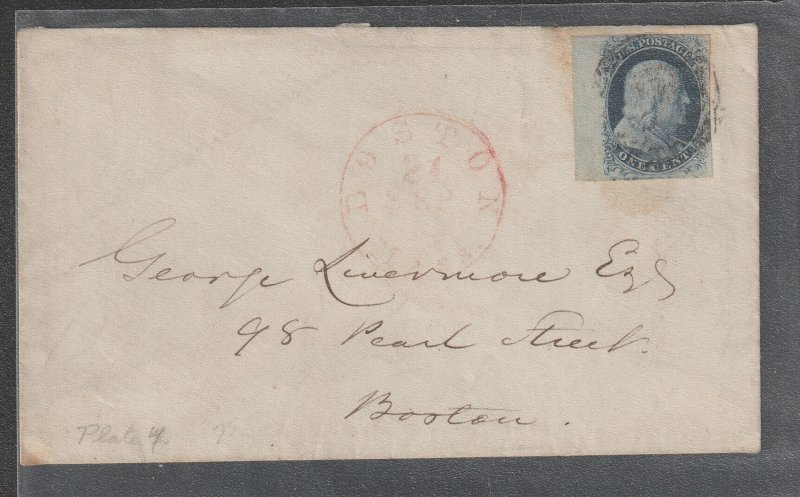 U.S. POSTAGE
ONE CENT
BOSTON
21
George Livermore Esq
98 Pearl Street.
Boston.
Plate 4